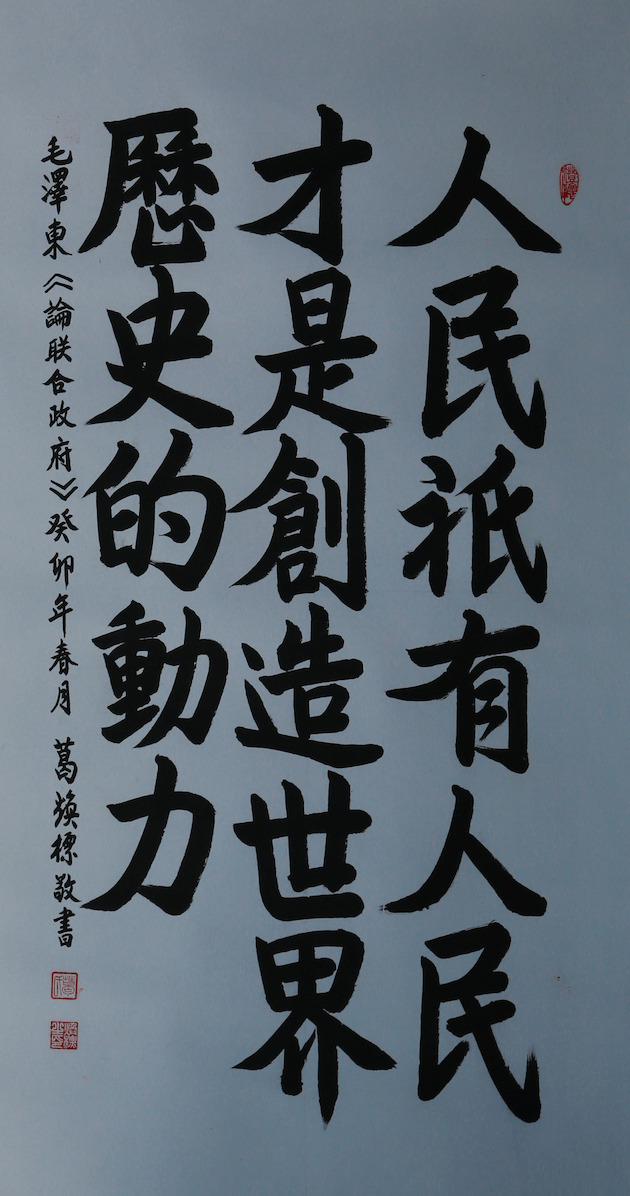 人民祇有人民
才是創造世界
歷史的動力
毛澤東《論联合政府》癸卯年春月 葛焕標敬書